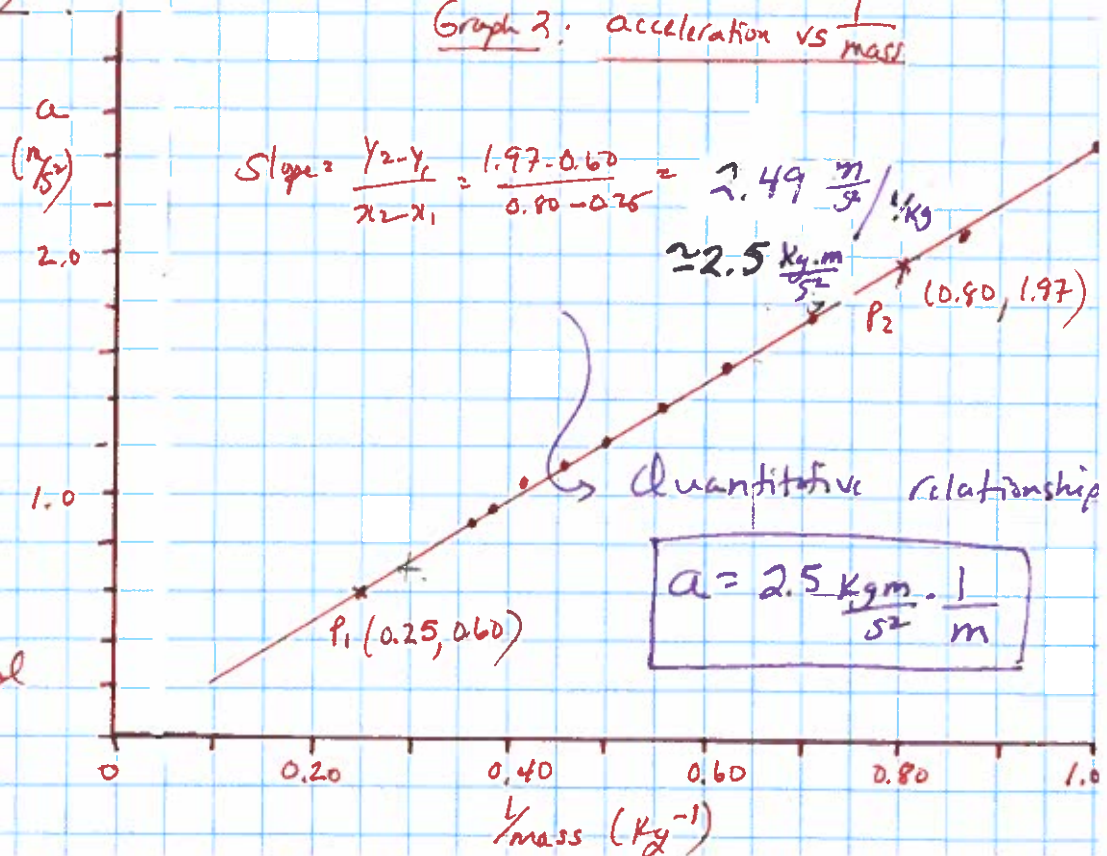 Graph 2: acceleration vs 1/mass
a
(m/s²)
Slope = (y₂-y₁)/(x₂-x₁) = (1.97-0.60)/(0.80-0.25) = 2.49 m/s² / 1/kg
≃2.5 kg.m/s²
2.0
(0.80, 1.97)
P₂
1.0
Quantitative relationship
a = 2.5 kgm/s² · 1/m
P₁ (0.25, 0.60)
0 0.20 0.40 0.60 0.80 1.0
1/mass (kg⁻¹)